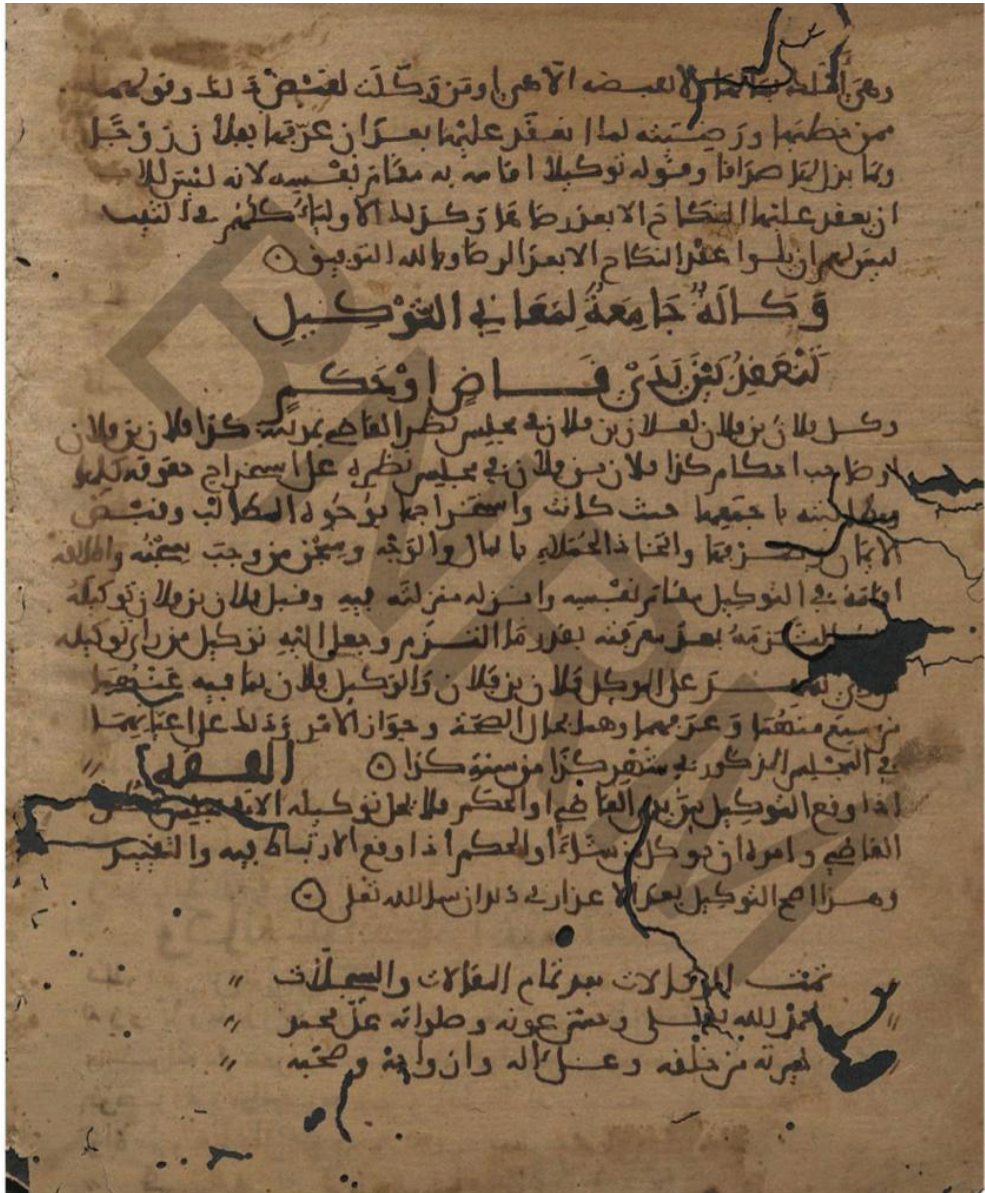 وهي
لا يقبضه الا هي او من وكلت لقبض ذلك وقولهما
ممن خطبها ورضيته لها انعقد عليها بعد ان عرفها بفلان زوجا
وبما بذل لها صداقا وقوله توكيلا اقامه به مقام نفسه لانه ليس للاب
ان يعقد عليها النكاح الا بعد رضاها وكذلك الاولياء كلهم في الثيب
ليس لهم ان يلوا عقد النكاح الا بعد الرضا وبالله التوفيق
وَكالة جَامِعَة لِمَعَاني التوْكِيلِ
تنعقد بَيْنَ يَدَيْ قَاضٍ اوْ حَكَمٍ
وكل فلان بن فلان لفلان بن فلان في مجلس نظر القاضي بمدينة كذا فلان بن فلان
او صاحب احكام كذا فلان بن فلان في مجلس نظره على استخراج حقوقه كلها
ومطالبته باجمعها حيث كانت واستخراجها بوجوه المطالب وقبض
الايمان واتخاذ الحملاء بالمال والوجه وسجن من وجب سجنه واطلاقه
اقامه في التوكيل مقام نفسه وانزله منزلته فيه وقبل فلان بن فلان توكيله
والتزمه بعد معرفته بقدر ما التزم وجعل اليه توكيل من راى توكيله
على الموكل فلان بن فلان والوكيل فلان بما فيه عنهما
من سمع منهما وعرفهما وهما بحال الصحة وجواز الامر وذلك على اعيانهما
في المجلس المذكور في شهر كذا من سنة كذا [الفقه]
اذا وقع التوكيل بين يدي القاضي او الحكم فلا يحل توكيله الا
القاضي وامره ان يوكل من شاء او الحكم اذا وقع الارتباط فيه والتقييد
وهذا اصح التوكيل بعد الاعذار في ذلك ان شا الله تعلى
تمت الوكالات بعد تمام المقالات والسجلات
بحمد الله تعلى وحسن عونه وصلواته على محمد
خيرته من خلقه وعلى اله وازواجه وصحبه